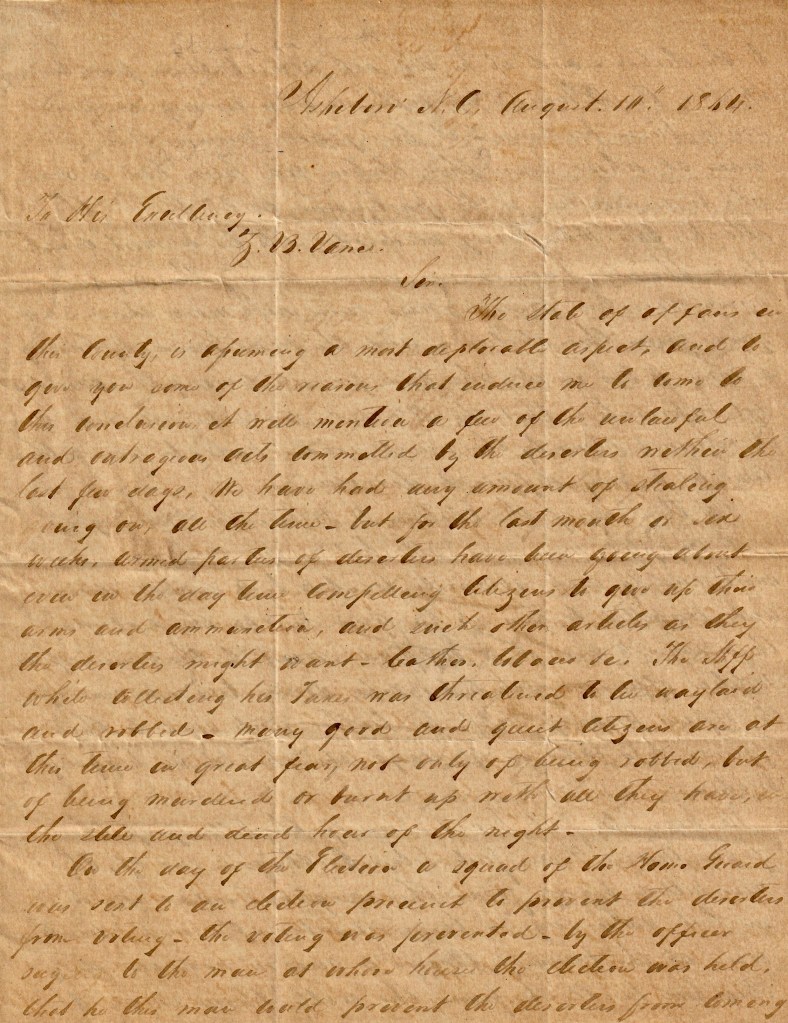 Asheboro N.C. August. 10th. 1864.
To His Excellency.
Z. B. Vance.
Sir.
The state of affairs in
this County, is assuming a most deplorable aspect, and to
give you some of the reasons that induce me to come to
this conclusion I will mention a few of the unlawful
and outrageous acts committed by the deserters within the
last few days. We have had any amount of stealing
going on, all the time - but for the last month or six
weeks, armed parties of deserters have been going about
even in the day time compelling citizens to give up their
arms and ammunition, and such other articles as they
the deserters might want - leather, tobacco &c. The
while collecting his Taxes was threatened to be waylaid
and robbed - many good and quiet citizens are at
this time in great fear, not only of being robbed, but
of being murdered or burnt up with all they have, in
the still and dead hour of the night -
On the day of the Election a squad of the Home Guard
was sent to an election precinct to prevent the deserters
from voting - the voting was prevented - by the officer
to the man at whose house the election was held,
that he this man could prevent the deserters from coming